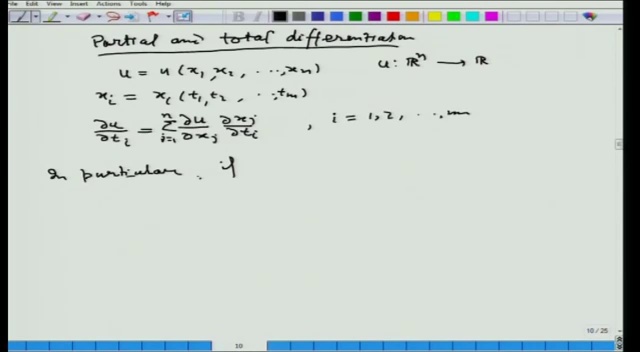 File Edit View Insert Actions Tools Help
Partial and total differentiation
u = u(x₁, x₂, ..., xₙ) u: ℝⁿ → ℝ
xᵢ = xᵢ(t₁, t₂, ..., tₘ)
∂u/∂tᵢ = Σⁿⱼ₌₁ ∂u/∂xⱼ ∂xⱼ/∂tᵢ , i = 1, 2, ..., m
In particular, if
10 / 25
10